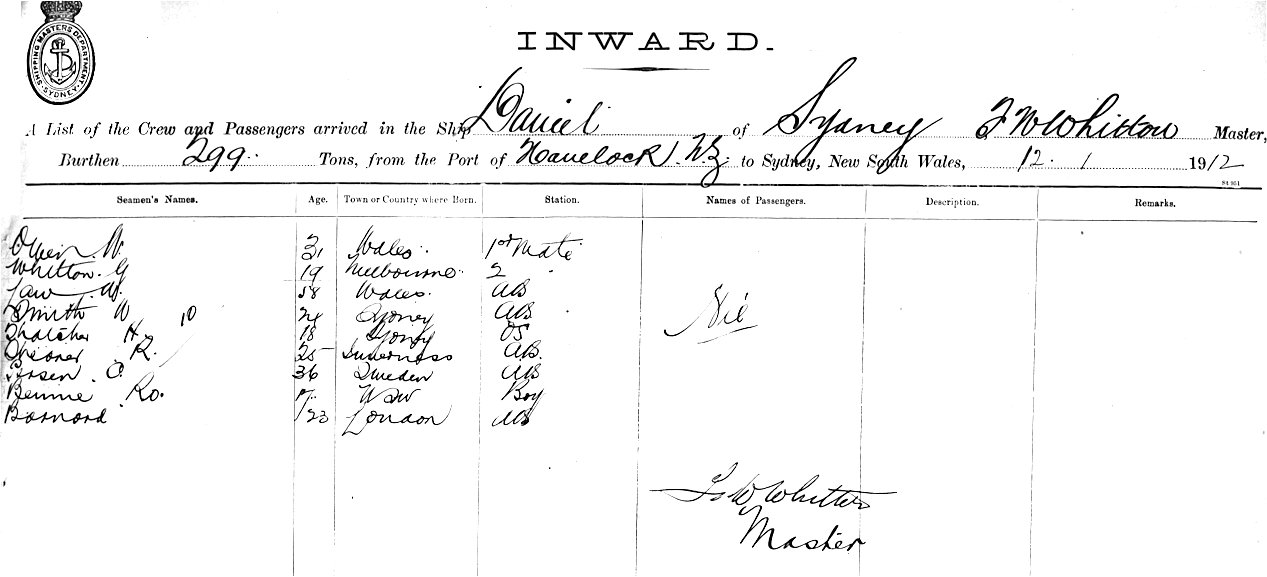 SHIPPING MASTERS DEPARTMENT. SYDNEY.
INWARD.
A List of the Crew and Passengers arrived in the Ship Daniel of Sydney F W Whitton Master,
Burthen 299 Tons, from the Port of Havelock N.Z. to Sydney, New South Wales, 12. 1 1912
Seamen's Names. Age. Town or Country where Born. Station. Names of Passengers. Description. Remarks.
Owen W 31 Wales 1st Mate
Whitton G 19 Melbourne 2
Law W. 58 Wales. AB
Smith W 24 Sydney AB
10
Thatcher H 18 Sydney OS
R. 25 Inverness AB.
C 36 Sweden AB
Bennie Ro. NSW Boy
Barnard 23 London AB
Nil
F W Whitton
Master